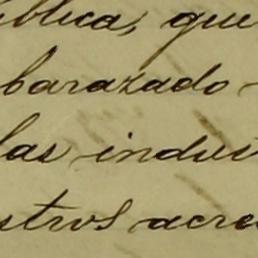 ública, que
barazado
las indus
stros acre